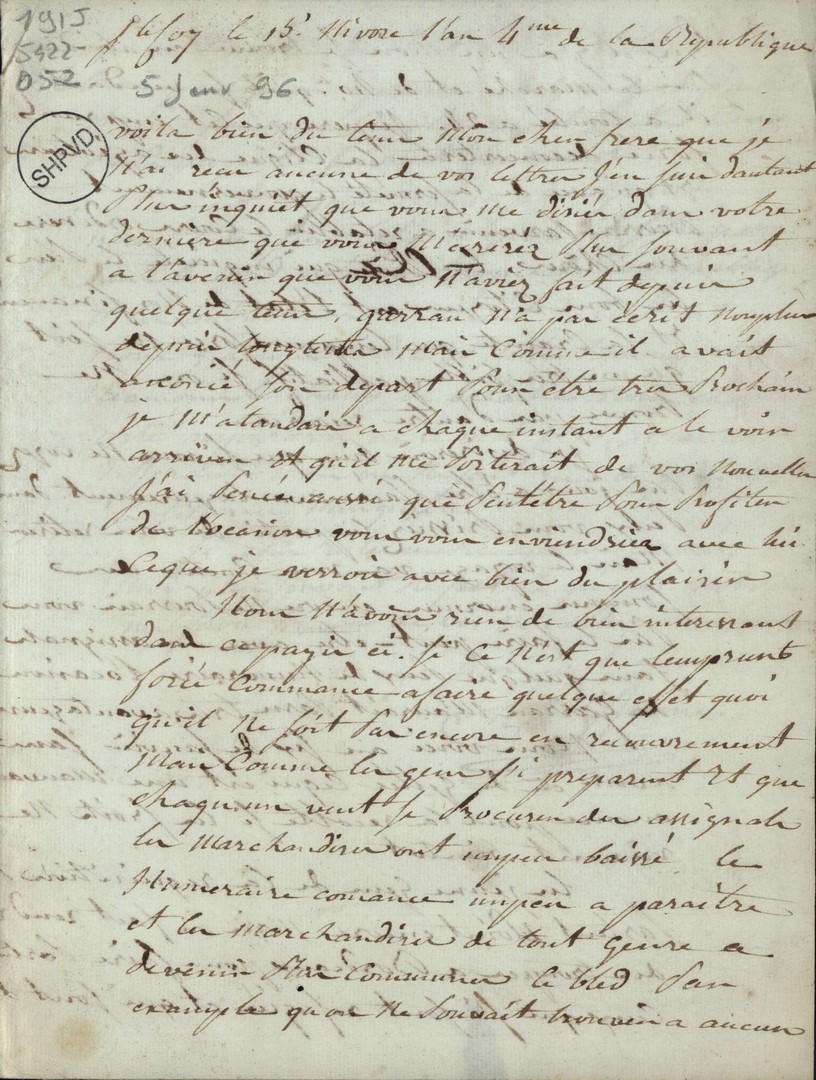 191J
5422-
052
Ste foy le 15e Nivose l'an 4me de la Republique
5 Janv 96
SHPVD
voila bien du tems Mon cher frere que je
N'ai recu aucune de vos lettres J'en suis dautant
Plus inquiet que vous me disiés dans votre
derniere que vous M'ecreréz Plus souvant
a l'avenir que vous N'aviez fait depuis
quelque tems, garrau N'a pas écrit Nonplus
depuis longtems Mais Comme il avait
anoncé son depart Pour étre tres Prochain
je M'atandais a chaque instant a le voir
arriver et qu'il me Porterait de vos Nouvelles
J'ai Pensé aussi que Peutêtre Pour Profiter
de l'ocasion vous vous enviendriez avec lui
Ceque je verrois avec bien du plaisir
Nous N'avons rien de bien interessant
dans ce payis ci. Si Ce N'est que lemprunt
forcé Commance afaire quelque effet quoi
qu'il Ne soit Pas encore en recouvrement
Mais Comme les gens si preparent et que
chaqu'un veut se Procurer des assignats
les Marchandises ont unpeu baissé le
Numeraire comance unpeu a paraitre
et les Marchandises de tout genre a
devenir Plus Communes le bled Par
exemple qu'on Ne Pouvait trouver a aucun